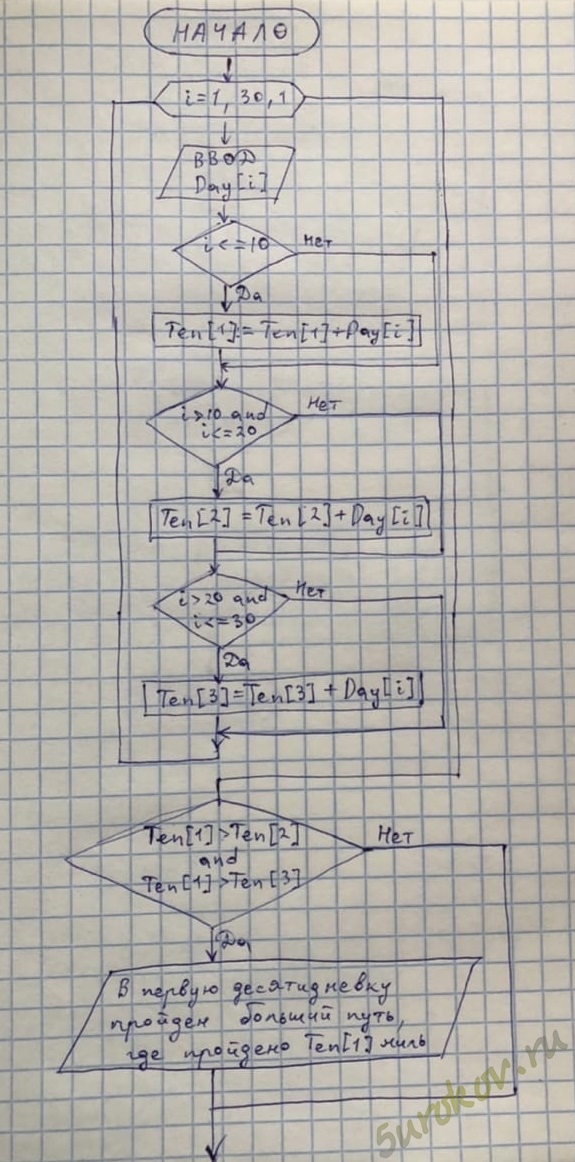 НАЧАЛО
i=1, 30, 1
ВВОД
Day[i]
i<=10
Нет
Да
Ten[1]:=Ten[1]+Day[i]
i>10 and
i<=20
Нет
Да
Ten[2]=Ten[2]+Day[i]
i>20 and
i<=30
Нет
Да
Ten[3]=Ten[3]+Day[i]
Ten[1]>Ten[2]
and
Ten[1]>Ten[3]
Нет
Да
В первую десятидневку
пройден больший путь,
где пройдено Ten[1] миль
5urokov.ru